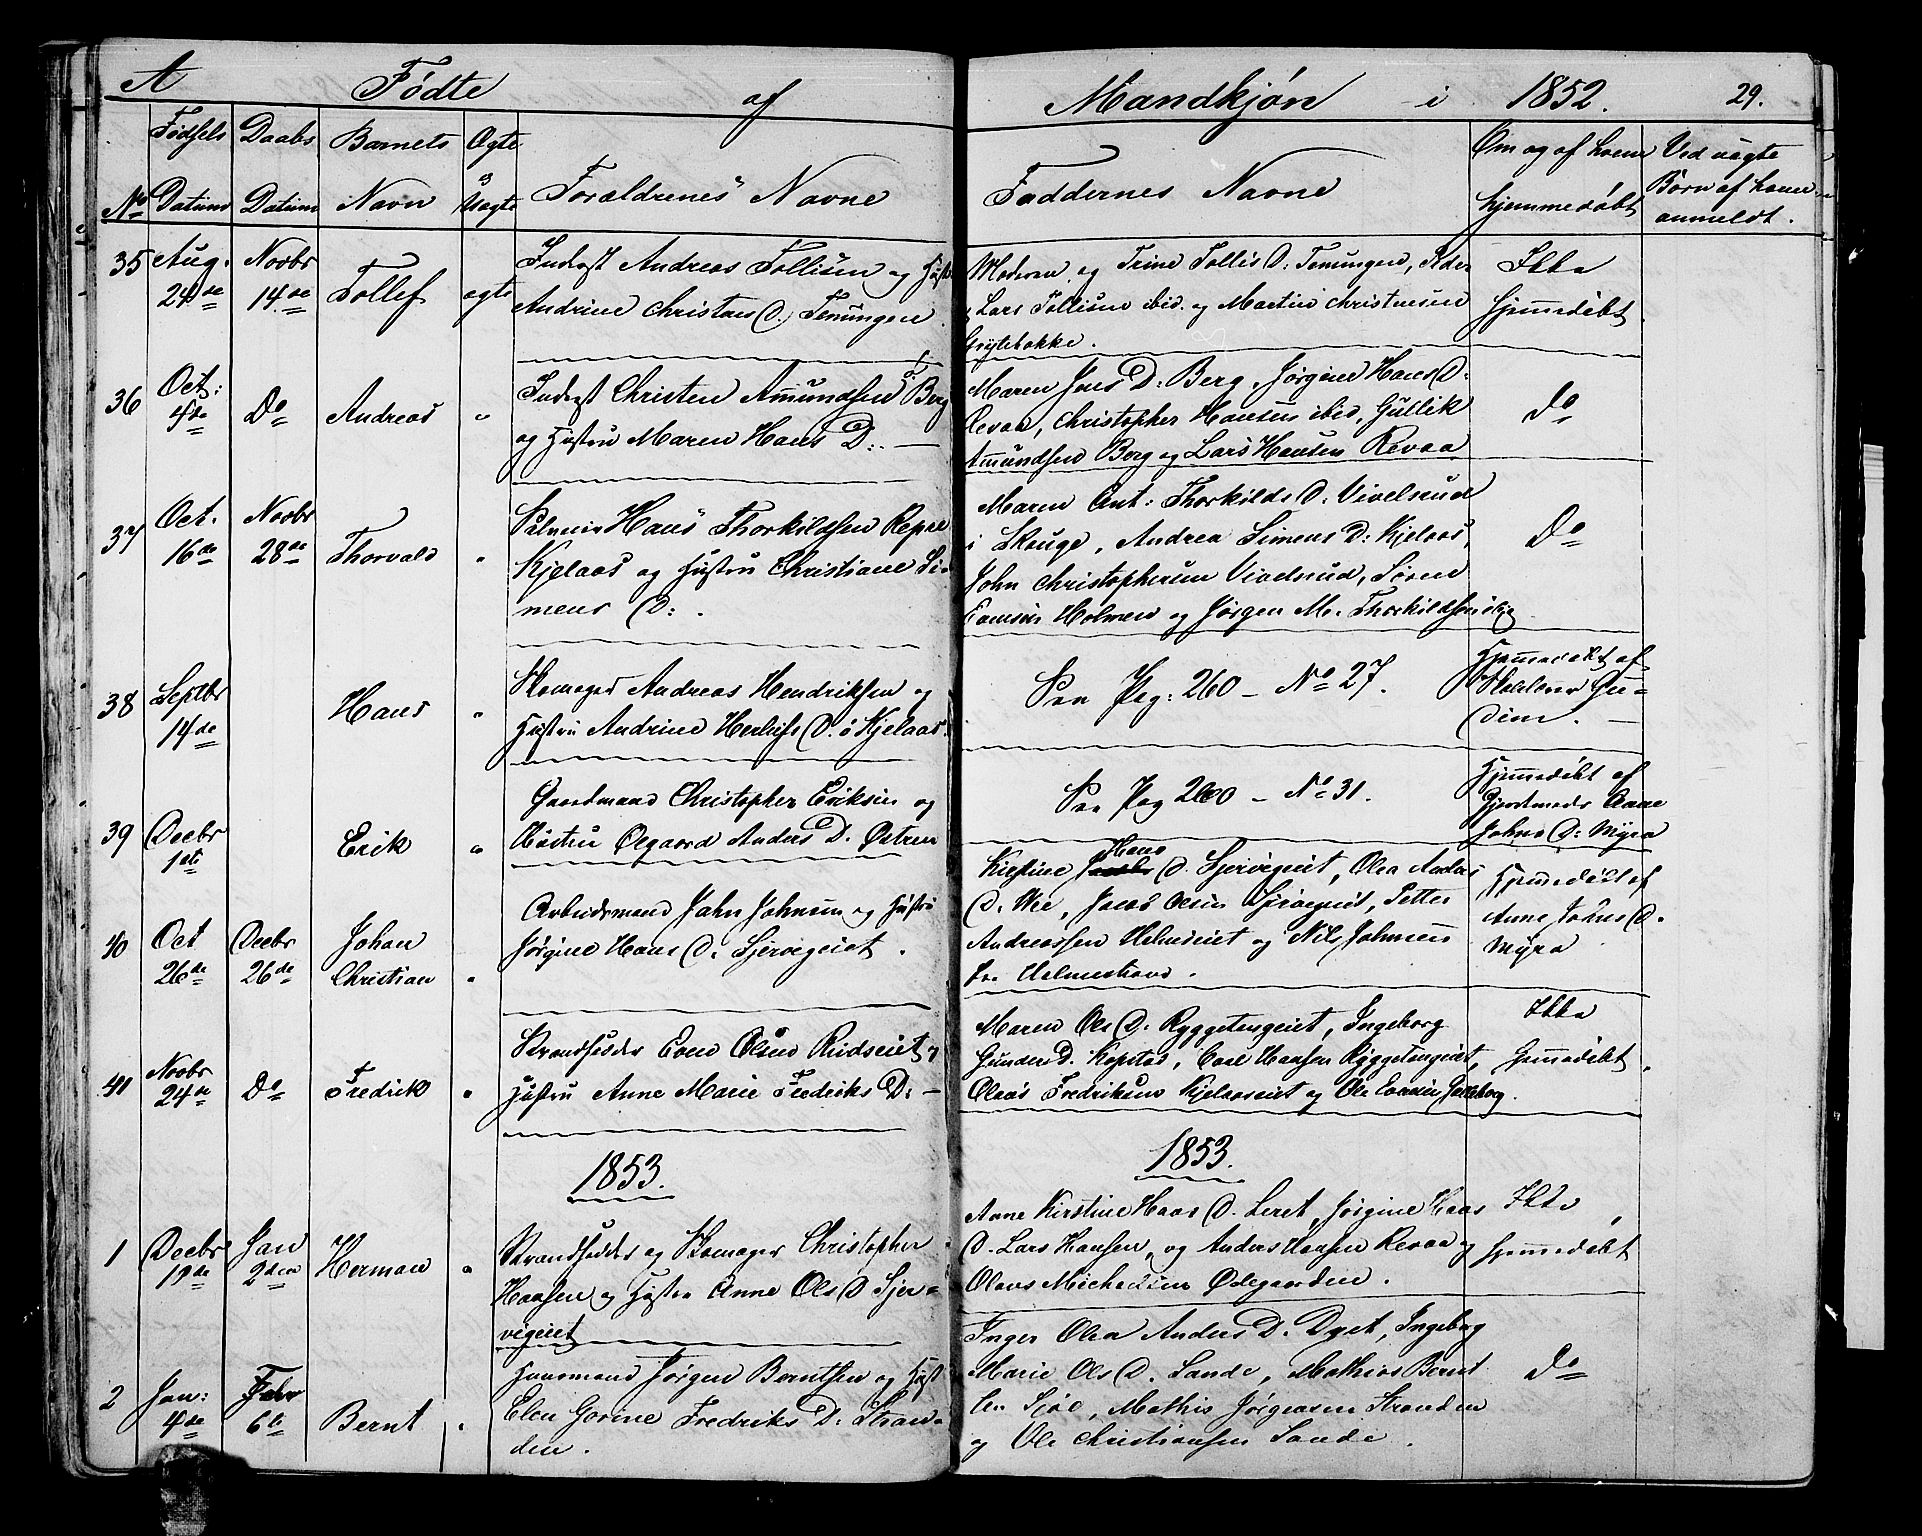 A Fødte af Mandkjøn i 1852. 29.
No Fødsels Datum Daabs Datum Barnets Navn Ægte o Uægte Forældrenes Navne Faddernes Navne Om og af hvem hjemmedøbt Ved uægte Børn af hvem anmeldt.
35 Aug. Novbr Tollef Inderst Andreas Tollisen og Hust
24de 14de ægte Andrine Christens D. Tenungen
Moderen og Trine Tollis D: Tenungen,
Lars Tollisen ibid. og Martin Christensen
Grytebakke.
Ikke
hjemmedøbt.
36 Oct: Do Andreas " Inderst Christen Amundsen Berg
4de og Hustru Maren Hans D:
Maren Jens D: Berg, Jørgine Hans D:
Revaa, Christopher Hansen ibid, Gullik
Amundsen Berg og Lars Hansen Revaa
Do
37 Oct. Novbr Thorvald " Hans Thorkildsen
16de 28de Kjelaas og Hustru Christiane Si-
mens D:
Maren Ant: Thorkilds D: Vivelsrud
i Skouge, Andrea Simens D: Kjelaas,
John Christophersen Vivelsrud, Søren
Holmen og Jørgen M. Thorkildsen
Do
38 Septbr Hans " Skomager Andreas Hendriksen og
14de Hustru Andrine D. Kjelaas
See Pag: 260 - No 27.
Hjemmedøbt af
Gu-
dim.
39 Decbr Erik " Gaardmand Christopher Eriksen og
1ste Hustru Olegaard Anders D. Østren
See Pag 260 - No 31.
Hjemmedøbt af
Gjordmoder Anne
Johns D: Myra
40 Oct Decbr Johan Arbeidsmand John Johnsen og Hustru
26de 26de Christian " Jørgine Hans D. Sjervigeiet.
Kirstine Hans D. Sjervigeiet, Olea Anders
D. Wee, Jacob Olsen Sjervigeiet, Petter
Andreassen Helmseiet og Nils Johnsen
fra Holmestrand.
Hjemmedøbt af
Anne Johns D.
Myra
41 Novbr Do Fredrik " Strandsidder Even Olsen Rudseiet og
24de Hustru Anne Marie Fredriks D:
Maren Ols D. Ryggetangeiet, Ingeborg
Gunders D. Kopstad, Carl Hansen Ryggetangeiet,
Olaus Fredriksen Kjelaaseiet og Ole Evensen
Ikke
hjemmedøbt.
1853. 1853.
1 Decbr Jan Herman " Strandsidder og Skomager Christopher
19de 2den Hansen og Hustru Anne Ols D Sjer-
vigeiet
Anne Kirstine Hans D. Leret, Jørgine Hans
D. Lars Hansen, og Anders Hansen Revaa og
Olaus Michelsen Ødegaarden.
Ikke
hjemmedøbt
2 Jan: Febr Bernt " Huusmand Jørgen Berntsen og Hust
4de 6te Elen Gorine Fredriks D: Stran-
den.
Inger Olea Anders D. Dyet, Ingeborg
Marie Ols D. Sande, Mathias Bernt
sen Sjøe, Mathis Jørgensen Stranden
og Ole Christiansen Sande.
Do